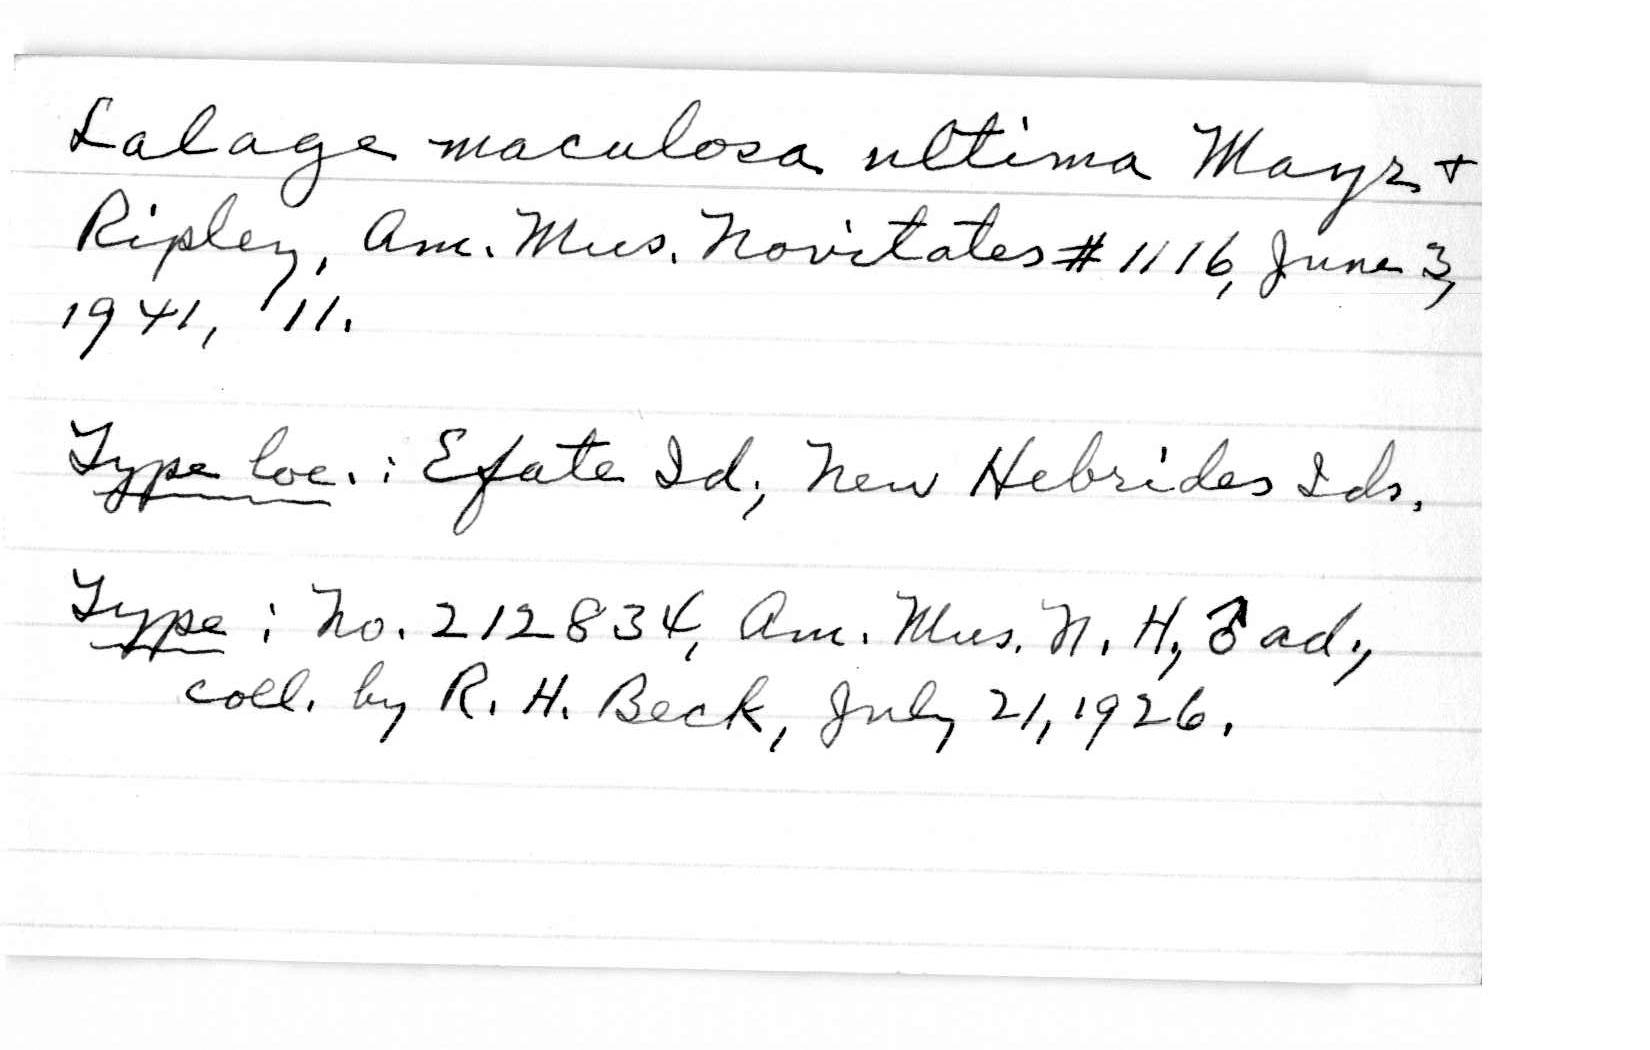 Lalage maculosa ultima Mayr +
Ripley, Am. Mus. Novitates # 1116, June 3,
1941, 11.
Type loc.: Efate Id., New Hebrides Ids.
Type: No. 212834, Am. Mus. N. H., ♂ ad.,
coll. by R. H. Beck, July 21, 1926.